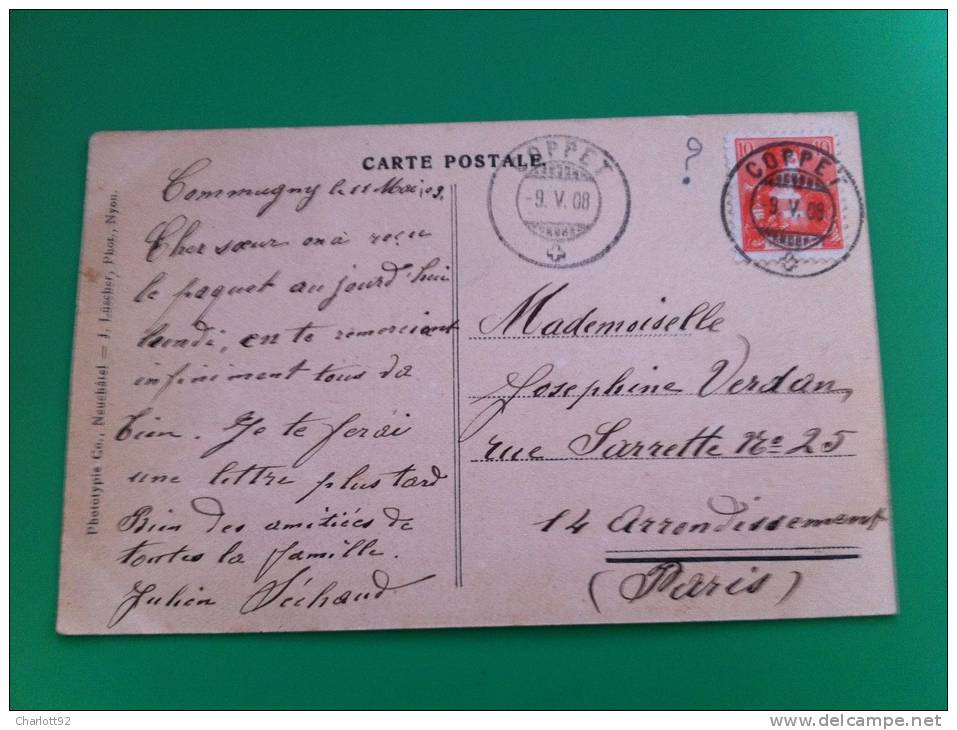 CARTE POSTALE.
Commugny le 11 Mai 09.
Cher sœur on à reçu
le paquet aujourd'hui
lundi, en te remerciant
infiniment tous va
bien. Je te ferai
une lettre plus tard
Bien des amitiées de
toutes la famille.
Julien Séchaud
COPPET
-9. V. 08
?
10 10
COPPET
-9. V. 08
Mademoiselle
Josephine Verdan,
rue Sarrette No 25
14 Arrondissement
(Paris)
Phototypie Co., Neuchâtel = J. Lüscher, Phot., Nyon.
Charlott92
www.delcampe.net